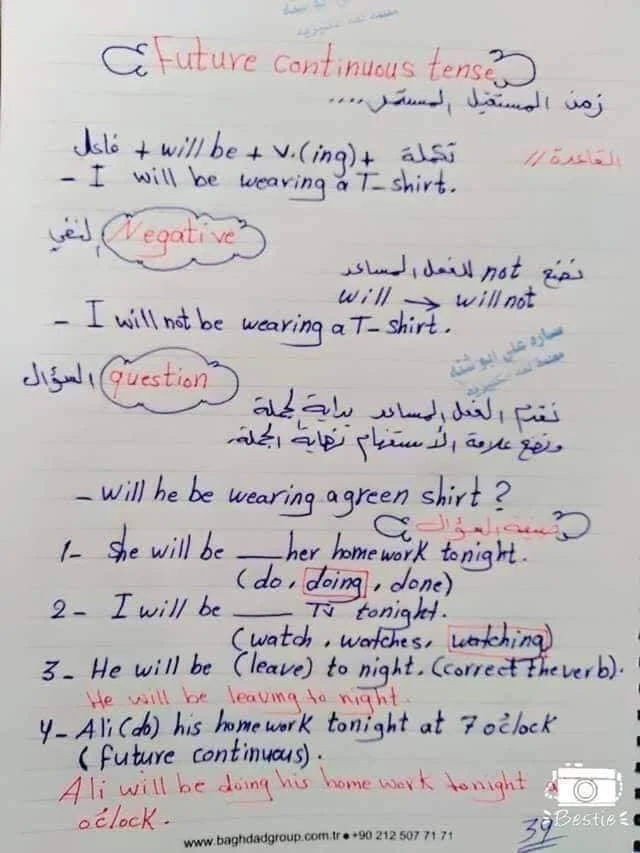 Future continuous tense
زمن المستقبل المستمر....
القاعدة //
فاعل + will be + v.(ing) + تكملة
- I will be wearing a T-shirt.
Negative النفي
نضع not للفعل المساعد
will → will not
- I will not be wearing a T-shirt.
ساره علي ابو شنه
question السؤال
نقدم الفعل المساعد بداية الجملة
ونضع علامة الأستفهام نهاية الجملة.
- will he be wearing a green shirt?
صيغة السؤال
1- She will be ___ her homework tonight.
(do, doing, done)
2- I will be ___ TV tonight.
(watch, watches, watching)
3- He will be (leave) to night. (correct the verb).
He will be leaving to night.
4- Ali (do) his homework tonight at 7 o'clock
(future continuous).
Ali will be doing his home work tonight
o'clock.
Bestie
39
www.baghdadgroup.com.tr ● +90 212 507 71 71